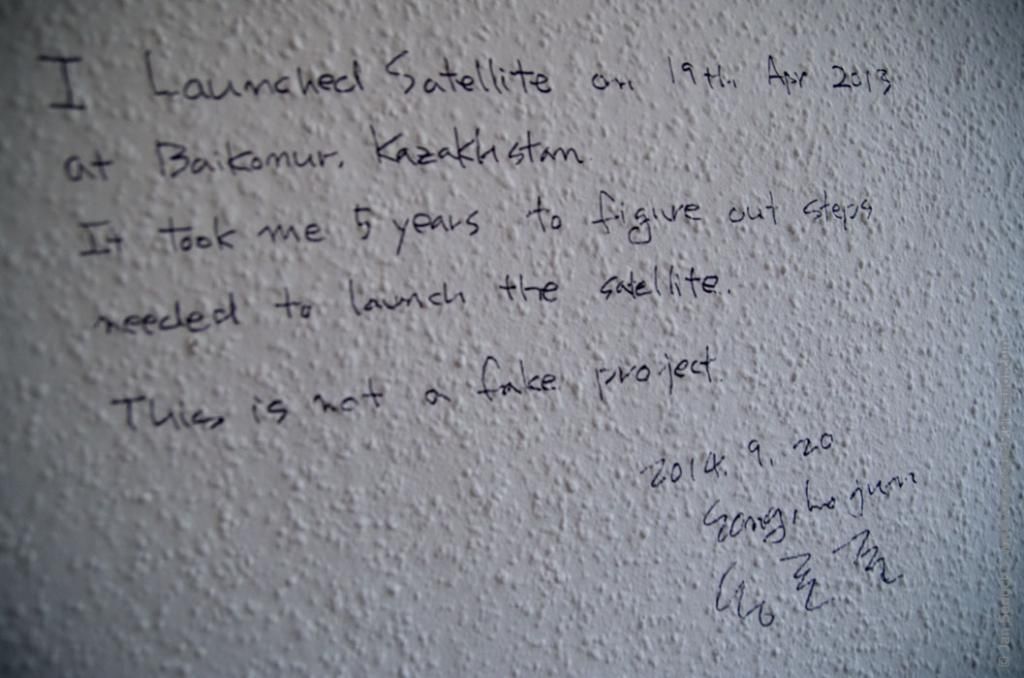 I Launched Satellite on 19th Apr 2013
at Baikonur. Kazakhstan
It took me 5 years to figure out steps
needed to launch the satellite.
This is not a fake project.
2014. 9. 20
Song, ho jun
송호준